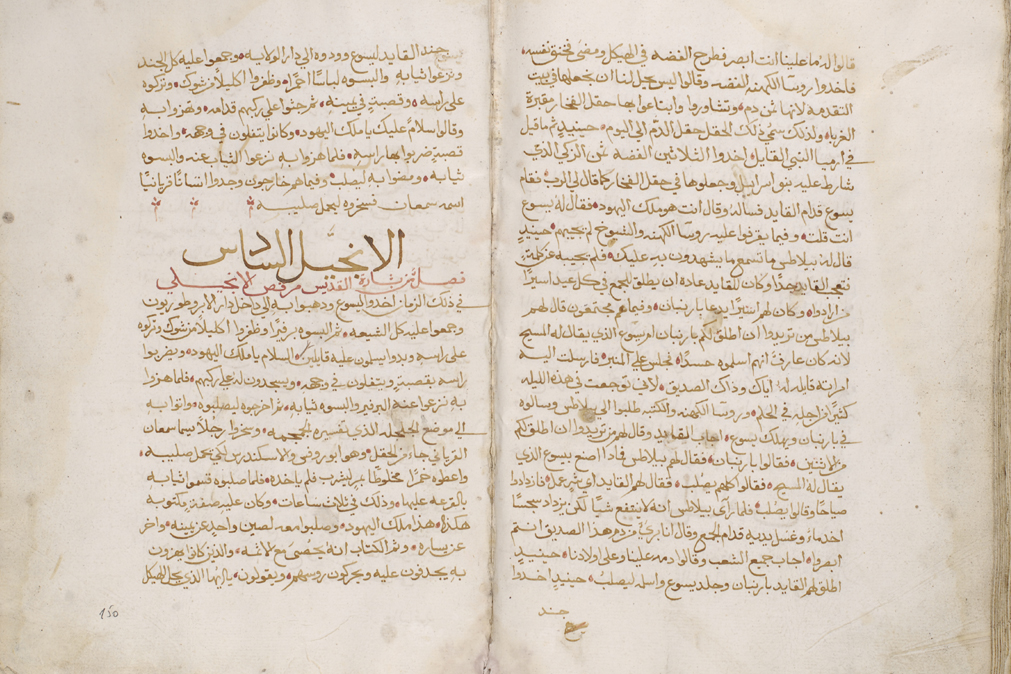 قالوا له ما علينا انت ابصر فطرح الفضه في الهيكل ومضى فخنق نفسه
فاخدوا روسا الكهنه الفضه وقالوا ليس يحل لنا ان نجعلها في بيت
التقدمه لانها ثمن دم وتشاوروا وابتاعوا بها حقل الفخار مقبرة
الغربا ولذلك سمي ذلك الحقل حقل الدم الي اليوم حينيدٍ تم ما قيل
في ارميا النبي القايل اخدوا الثلاثين الفضه ثمن الزكي الذي
شارط عليه بنو اسراييل وجعلوها في حقل الفخار كما قال لي الرب فقام
يسوع قدام القايد فساله وقال انت هو ملك اليهود فقال له يسوع
انت قلت وفيما يقرفوا عليه روسا الكهنه والشيوخ لم يجيبهم حينيدٍ
قال له بيلاطس ما تسمع ما يشهدون به عليك فلم يجيبه عن كلمةٍ
فتعجب القايد جدا وكان للقايد عادة ان يطلق للجمع في كل عيد اسيرًا
من ارادوا وكان لهم اسيرًا يدعا باربنبان وفيما هم مجتمعون قال لهم
بيلاطس من تريدوا ان اطلق لكم باربنبان ام يسوع الذي يقال له المسيح
لانه كان عارف انهم اسلموه حسدًا فجلس علي المنبر فارسلت اليه
امراته قايله له اياك وذاك الصديق لاني توجعت في هذه الليله
كثيرًا من اجله في الحلم وروسا الكهنه والكتبه طلبوا الي بيلاطس وسالوه
في باربنبان ويهلك يسوع اجاب القايد وقال لهم من تريدوا ان اطلق لكم
من الاثنين فقالوا باربنبان فقال لهم بيلاطس فمادا اصنع بيسوع الذي
يقال له المسيح فقالوا كلهم يصلب فقال لهم القايد اي شر عمل فازدادوا
صياحًا وقالوا يصلب فلما راى بيلاطس انه لا ينتفع شيًا لكن يزداد سجسًا
اخد ماءً وغسل يديه قدام الجمع وقال انا بريٌ من دم هذا الصديق انتم
ابصروا اجاب جميع الشعب وقالوا دمه علينا وعلى اولادنا حينيدٍ
اطلق لهم القايد باربنبان وجلد يسوع واسلمه ليصلب حينيدٍ اخدوا
جند
جند القايد ليسوع وودوه الي دار الولايه وجمعوا عليه كل الجند
ونزعوا ثيابه والبسوه لباسًا احمرًا وظفروا اكليلًا من شوك وتركوه
على راسه وقصبة في يمينه ثم جثوا علي ركبهم قدامه وتهزوا به
وقالوا سلامٌ عليك يا ملك اليهود وكانوا يتفلون في وجهه واخدوا
قصبةٍ ضربوا بها راسه فلما هزوا به نزعوا الثياب عنه والبسوه
ثيابه ومضوا به ليصلب وفيما هم خارجون وجدوا انسانًا قريانيًا
اسمه سمعان فسخروه ليحمل صليبه
الانجيل السادس
فصل من بشارة القديس مرقص الانجيلي
في ذلك الزمان اخدوا اليسوع ودهبوا به الي داخل دار الابروطوريون
وجمعوا عليه كل الشيعه ثم البسوه برفيرًا وظفروا اكليلًا من شوك وتركوه
على راسه وبدوا يسلمون عليه قايلين السلام يا ملك اليهود ويضربوا
راسه بقصبةٍ ويتفلون في وجهه ويسجدون له علي ركبهم فلما هزوا
به نزعوا عنه البرفير والبسوه ثيابه ثم اخرجوه ليصلبوه واتوا به
الي موضع الجلجله الذي تفسيره الجمجمه وسخروا رجلًا يسما سمعان
القرياني جاء من الحقل وهو ابو روفس والاسكندرس لكي يحمل صليبه
واعطوه خمرًا مخلوطًا بمرٍ ليشرب فلم ياخده فلما صلبوه قسموا ثيابه
بالقرعه عليها وذلك في ثلات ساعات وكان عليه صفةٍ مكتوبه
هكذا هذا ملك اليهود وصلبوا معه لصين واحدٍ عن يمينه واخر
عن يساره وتم الكتاب انه يحصى مع الاثمه والذين كانوا يمرون
به يجدفون عليه ويحركون روسهم ويقولون يا ايها الذي يحل الهيكل
150